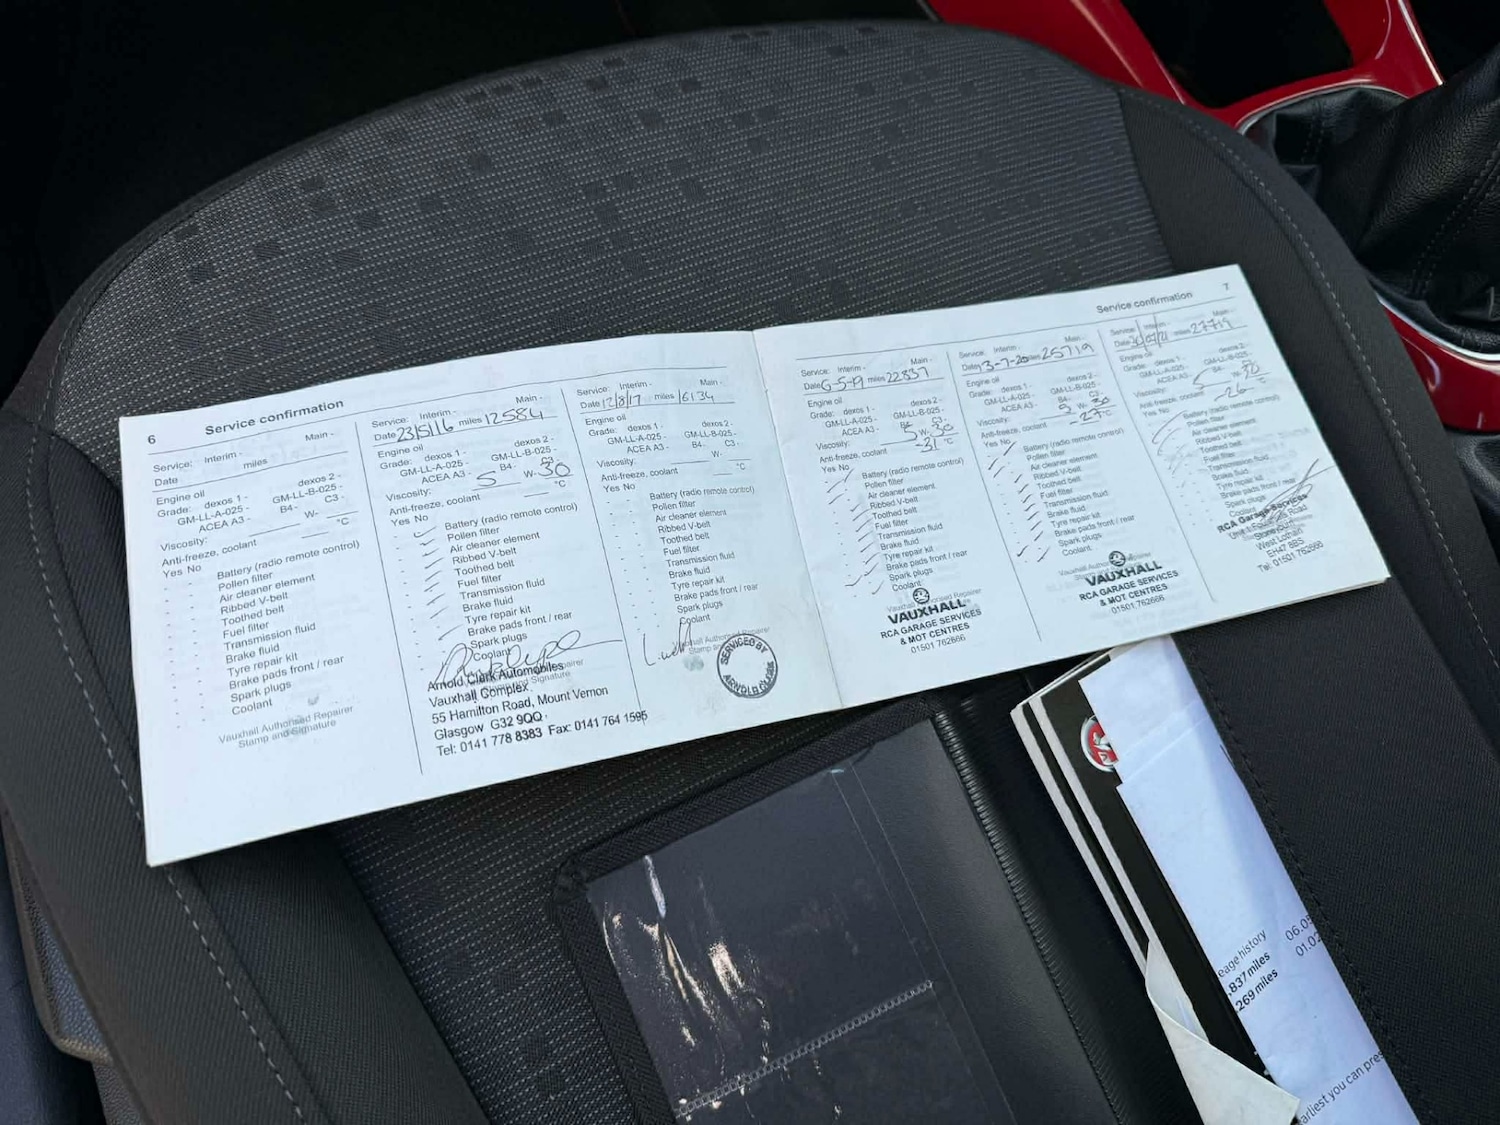 6
Service confirmation
Service: Interim - Main -
Date miles
Engine oil
Grade: dexos 1 - dexos 2 -
GM-LL-A-025 - GM-LL-B-025 -
ACEA A3 - B4- C3 -
Viscosity: W-
Anti-freeze, coolant °C
Yes No
Battery (radio remote control)
Pollen filter
Air cleaner element
Ribbed V-belt
Toothed belt
Fuel filter
Transmission fluid
Brake fluid
Tyre repair kit
Brake pads front / rear
Spark plugs
Coolant
Vauxhall Authorised Repairer
Stamp and Signature
Service: Interim - Main -
Date 23/5/16 miles 12584
Engine oil
Grade: dexos 1 - dexos 2 -
GM-LL-A-025 - GM-LL-B-025 -
ACEA A3 - B4- C3 -
Viscosity: 5 W- 30
Anti-freeze, coolant °C
Yes No
Battery (radio remote control)
Pollen filter
Air cleaner element
Ribbed V-belt
Toothed belt
Fuel filter
Transmission fluid
Brake fluid
Tyre repair kit
Brake pads front / rear
Spark plugs
Coolant
Arnold Clark Automobiles
Vauxhall Complex
55 Hamilton Road, Mount Vernon
Glasgow G32 9QQ
Tel: 0141 778 8383 Fax: 0141 764 1595
Service: Interim - Main -
Date 12/8/17 miles 16134
Engine oil
Grade: dexos 1 - dexos 2 -
GM-LL-A-025 - GM-LL-B-025 -
ACEA A3 - B4- C3 -
Viscosity: W-
Anti-freeze, coolant °C
Yes No
Battery (radio remote control)
Pollen filter
Air cleaner element
Ribbed V-belt
Toothed belt
Fuel filter
Transmission fluid
Brake fluid
Tyre repair kit
Brake pads front / rear
Spark plugs
Coolant
SERVICED BY
ARNOLD CLARK
Service confirmation
7
Service: Interim - Main -
Date 6-5-19 miles 22837
Engine oil
Grade: dexos 1 - dexos 2 -
GM-LL-A-025 - GM-LL-B-025 -
ACEA A3 - B4- C3 -
Viscosity: 5 W- 30
Anti-freeze, coolant -31 °C
Yes No
Battery (radio remote control)
Pollen filter
Air cleaner element
Ribbed V-belt
Toothed belt
Fuel filter
Transmission fluid
Brake fluid
Tyre repair kit
Brake pads front / rear
Spark plugs
Coolant
VAUXHALL
RCA GARAGE SERVICES
& MOT CENTRES
01501 762666
Service: Interim - Main -
Date 13-7-20 miles 25719
Engine oil
Grade: dexos 1 - dexos 2 -
GM-LL-A-025 - GM-LL-B-025 -
ACEA A3 - B4- C3 -
Viscosity: 5 W- 30
Anti-freeze, coolant -27 °C
Yes No
Battery (radio remote control)
Pollen filter
Air cleaner element
Ribbed V-belt
Toothed belt
Fuel filter
Transmission fluid
Brake fluid
Tyre repair kit
Brake pads front / rear
Spark plugs
Coolant
VAUXHALL
RCA GARAGE SERVICES
& MOT CENTRES
01501 762666
Service: Interim - Main -
Date miles 27719
Engine oil
Grade: dexos 1 - dexos 2 -
GM-LL-A-025 - GM-LL-B-025 -
ACEA A3 - B4- C3 -
Viscosity: 5 W- 30
Anti-freeze, coolant -26 °C
Yes No
Battery (radio remote control)
Pollen filter
Air cleaner element
Ribbed V-belt
Toothed belt
Fuel filter
Transmission fluid
Brake fluid
Tyre repair kit
Brake pads front / rear
Spark plugs
Coolant
RCA Garage Services
West Lothian
EH47 8BS
Tel: 01501 762666
eage history 06.03
,837 miles 01.02
,269 miles
arliest you can pres